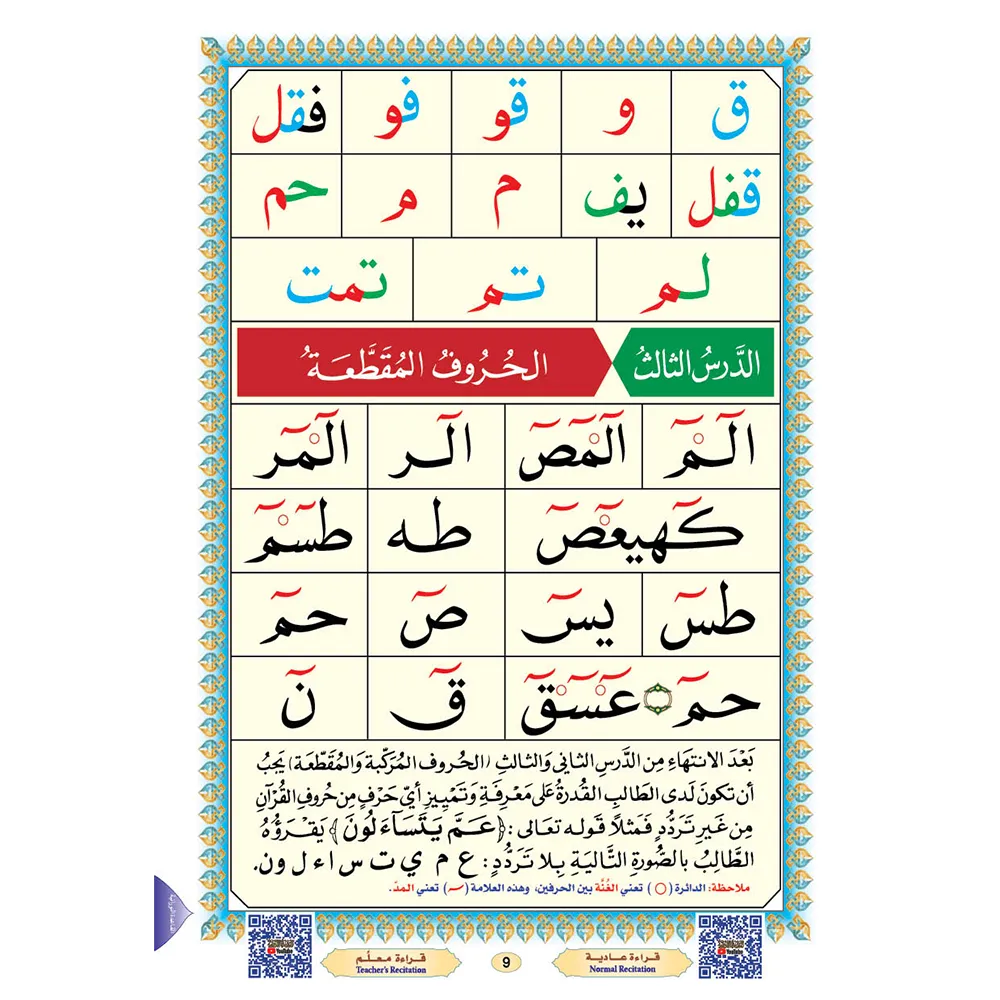 ق و قو فو فقل
قفل يف م م حم
لم تم تمت
الدَّرسُ الثالثُ الحُرُوفُ المُقَطَّعَةُ
الٓمٓ الٓمٓصٓ الٓر الٓمٓر
كٓهيعٓصٓ طه طسٓمٓ
طسٓ يسٓ صٓ حمٓ
حمٓ عٓسٓقٓ قٓ نٓ
بَعْدَ الانتهَاءِ مِنَ الدَّرسِ الثاني وَالثالثِ (الحُروف المُرَكّبة وَالمُقَطّعَة) يَجبُ
أن تكونَ لدى الطَالبِ القُدرةُ عَلى مَعْرفةِ وَتَمْييزِ أيّ حَرْفٍ مِن حُروفِ القُرآنِ
مِن غَيرِ تَردُّدٍ فَمَثلًا قَوله تعَالى: ﴿عَمَّ يَتَسَآءَلُونَ﴾ يَقرَؤُهُ
الطَّالِبُ بالصُّورةِ التَّاليَةِ بِلا تَرَدُّدٍ: ع م ي ت س ا ء ل و ن.
ملاحظة: الدائرة (○) تعني الغُنَّة بين الحرفين، وهذه العلامة (ـٓ) تعني المدّ.
YouTube قراءة معلّم 9 قراءة عادية YouTube
Teacher's Recitation Normal Recitation